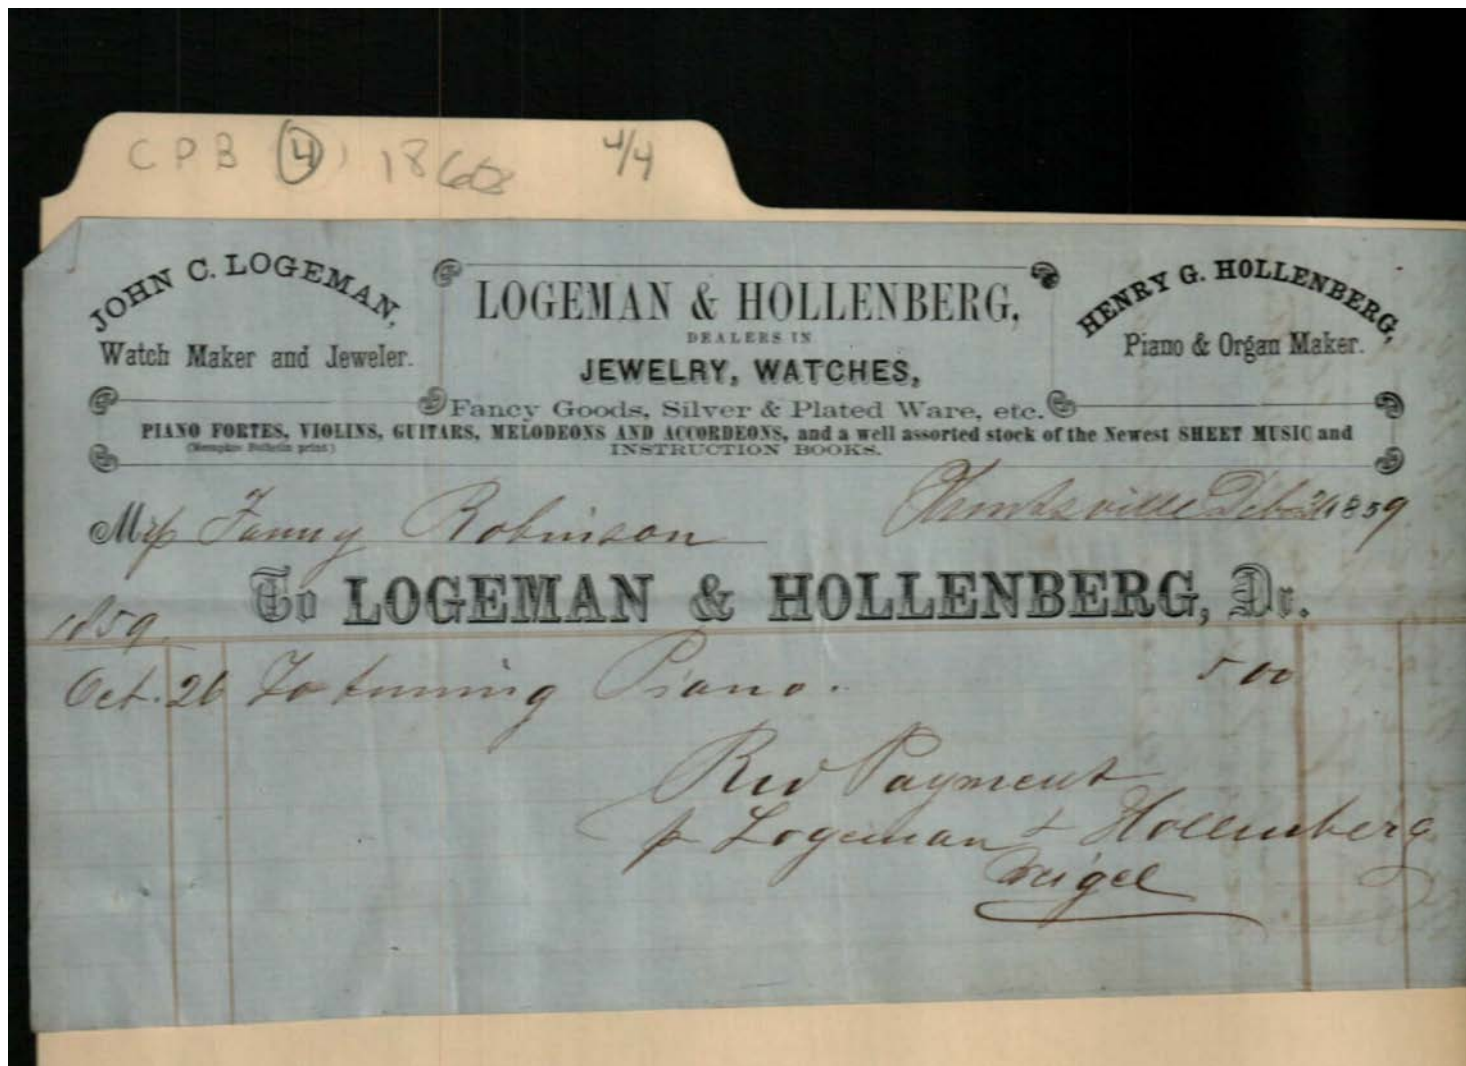 CPB (4) 1860 4/4
JOHN C. LOGEMAN,
Watch Maker and Jeweler.
LOGEMAN & HOLLENBERG,
DEALERS IN
JEWELRY, WATCHES,
Fancy Goods, Silver & Plated Ware, etc.
HENRY G. HOLLENBERG,
Piano & Organ Maker.
PIANO FORTES, VIOLINS, GUITARS, MELODEONS AND ACCORDEONS, and a well assorted stock of the Newest SHEET MUSIC and
(Memphis Bulletin print)
INSTRUCTION BOOKS.
Huntsville 1859
Fanny Robinson
To LOGEMAN & HOLLENBERG, Dr.
1859
Oct. 26 To tuning Piano. 5 00
Payment
p Logeman & Hollenberg